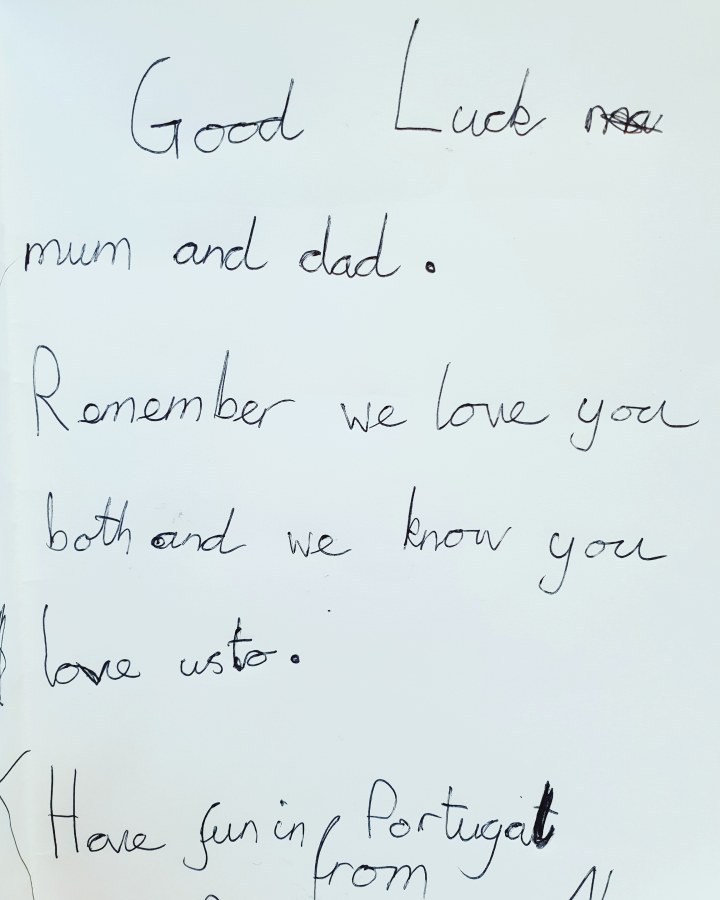 Good Luck
mum and dad.
Remember we love you
both and we know you
love us to.
Have fun in Portugal
from